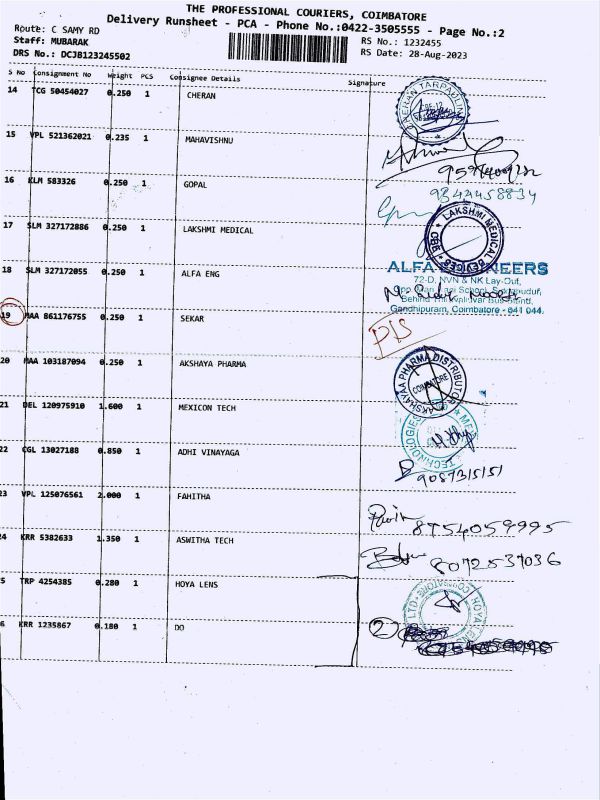 THE PROFESSIONAL COURIERS, COIMBATORE
Delivery Runsheet - PCA - Phone No.:0422-3505555 - Page No.:2
Route: C SAMY RD
Staff: MUBARAK RS No.: 1232455
DRS No.: DCJB123245502 RS Date: 28-Aug-2023
S No Consignment No Weight PCS Consignee Details Signature
14 TCG 50454027 0.250 1 CHERAN
15 VPL 521362021 0.235 1 MAHAVISHNU
16 KLM 583326 0.250 1 GOPAL 9344458834
17 SLM 327172886 0.250 1 LAKSHMI MEDICAL LAKSHMI MEDICAL DEVICES
18 SLM 327172055 0.250 1 ALFA ENG ALFA ENGINEERS
72-D, NVN & NK Lay-Out,
Gandhipuram, Coimbatore - 641 044.
19 MAA 861176755 0.250 1 SEKAR
20 MAA 103187094 0.250 1 AKSHAYA PHARMA AKSHAYAA PHARMA DISTRIBUTOR COIMBATORE
21 DEL 120975910 1.600 1 MEXICON TECH TECHNOLOGIES
22 CGL 13027188 0.850 1 ADHI VINAYAGA 9087315151
23 VPL 125076561 2.000 1 FAHITHA 8754059995
24 KRR 5382633 1.350 1 ASWITHA TECH 8072537036
5 TRP 4254385 0.280 1 HOYA LENS HOYA LENS LTD COIMBATORE
6 KRR 1235867 0.180 1 DO 2